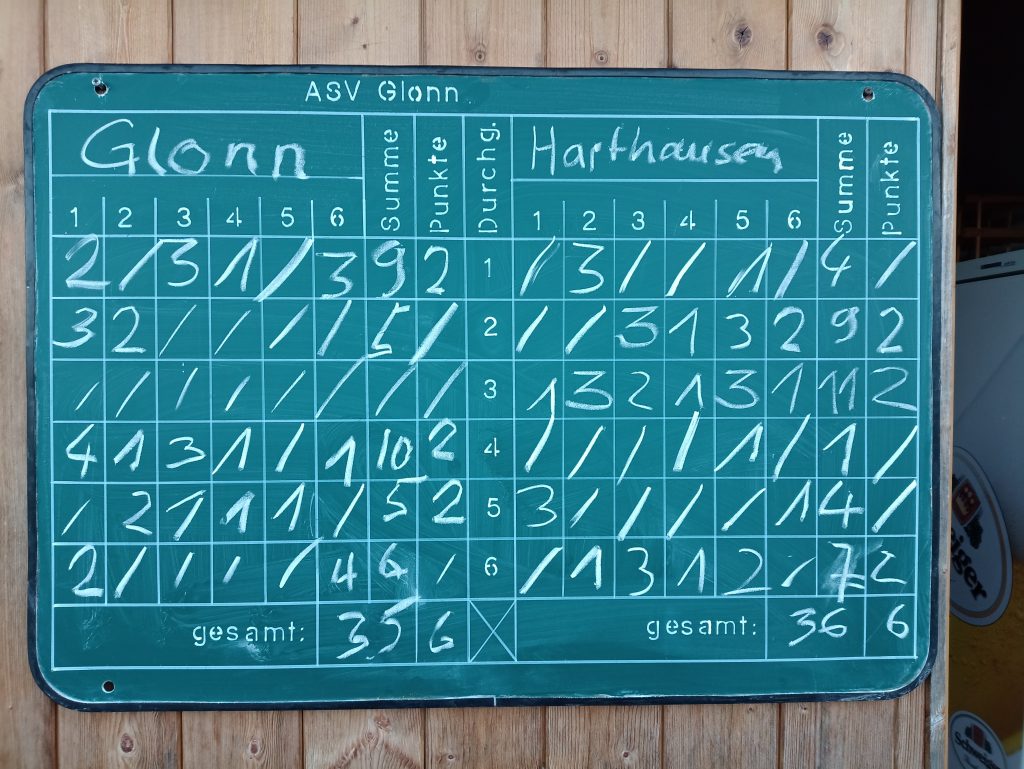 ASV Glonn
Glonn Summe Punkte Durchg. Harthausen Summe Punkte
1 2 3 4 5 6 1 2 3 4 5 6
2 / 3 1 / 3 9 2 1 / 3 / / 1 / 4 /
3 2 / / / / 5 / 2 / / 3 1 3 2 9 2
/ / / / / / / / 3 1 3 2 1 3 1 11 2
4 1 3 1 / 1 10 2 4 / / / / 1 / 1 /
/ 2 1 1 1 / 5 2 5 3 / / / / 1 4 /
2 / / / / 4 6 / 6 / 1 3 1 2 / 7 2
gesamt: 35 6 gesamt: 36 6